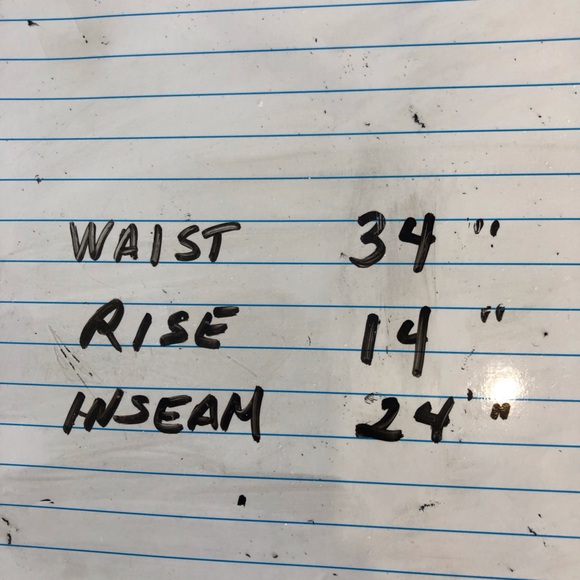 WAIST 34"
RISE 14"
INSEAM 24"